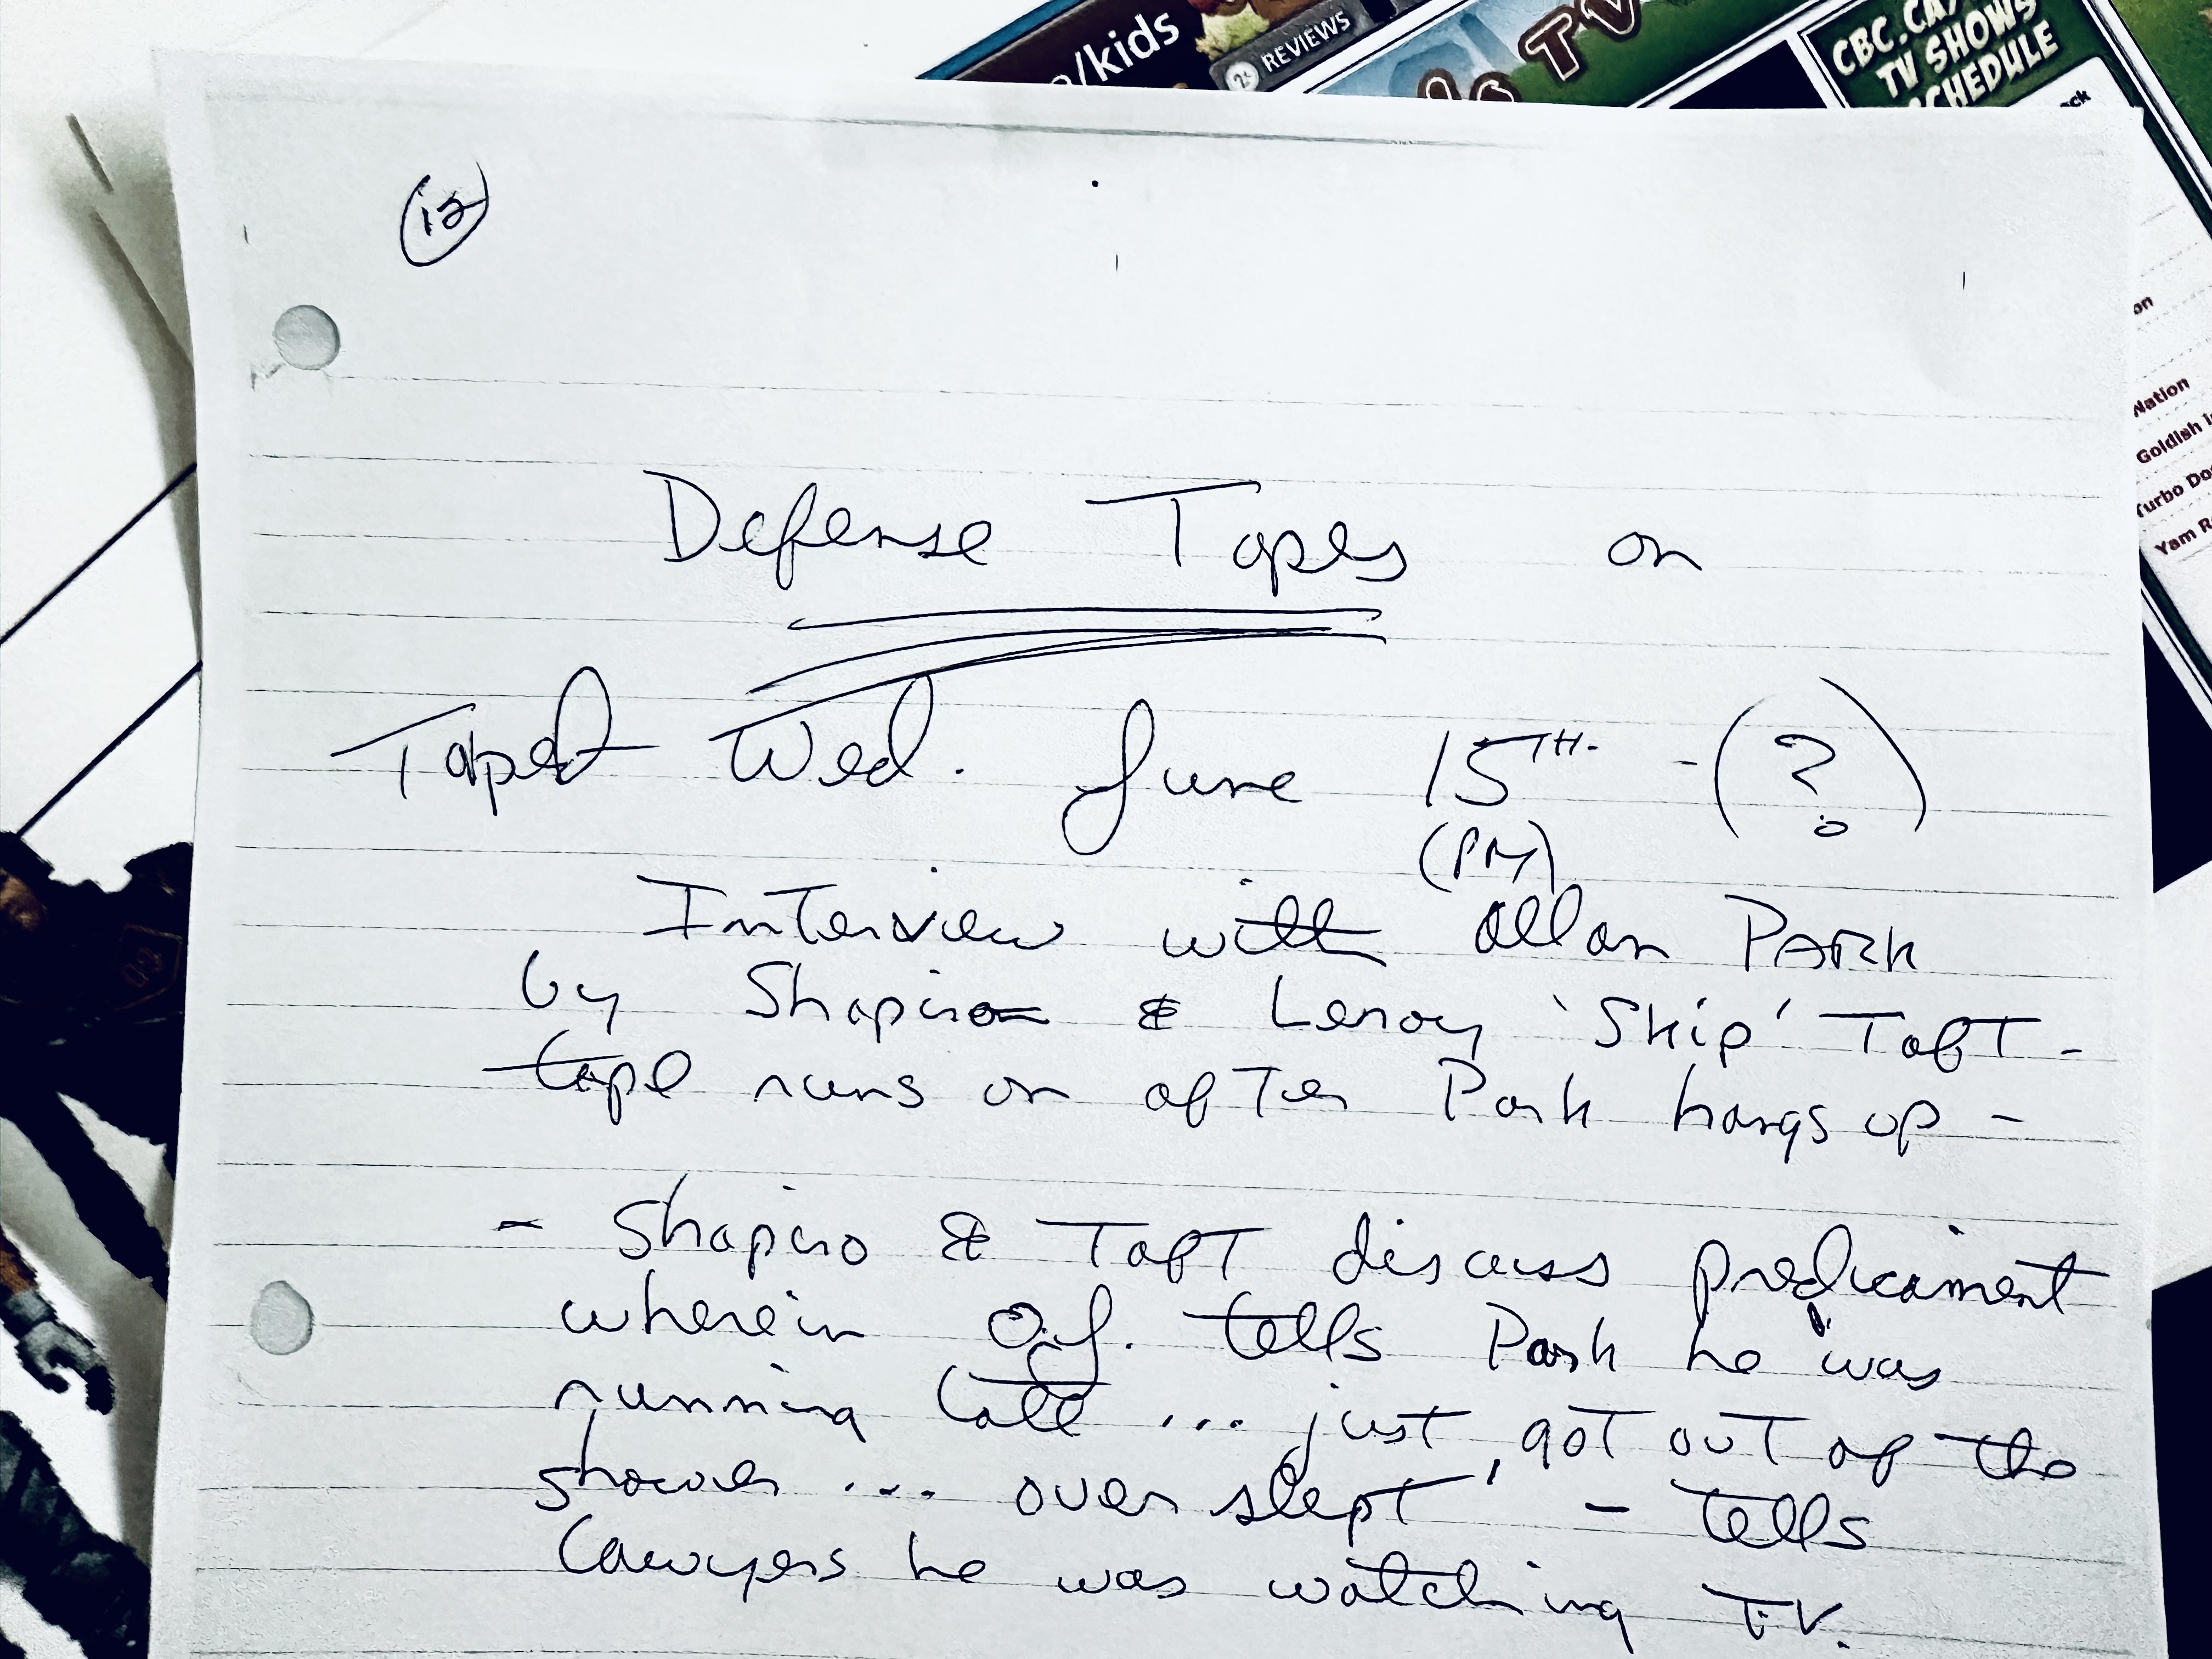 /kids
REVIEWS
TV
CBC.CA/
TV SHOWS
SCHEDULE
on
Nation
Goldish
Turbo Do
Yam R
12
Defense Tapes on
Taped Wed. June 15TH. - (?)
(PM)
Interview with Allan PARK
by Shapiro & Leroy 'Skip' Taft -
tape runs on after Park hangs up -
- Shapiro & Taft discuss predicament
wherein O.J. tells Park he was
running late ... 'just got out of the
shower ... over slept' - tells
Lawyers he was watching T.V.